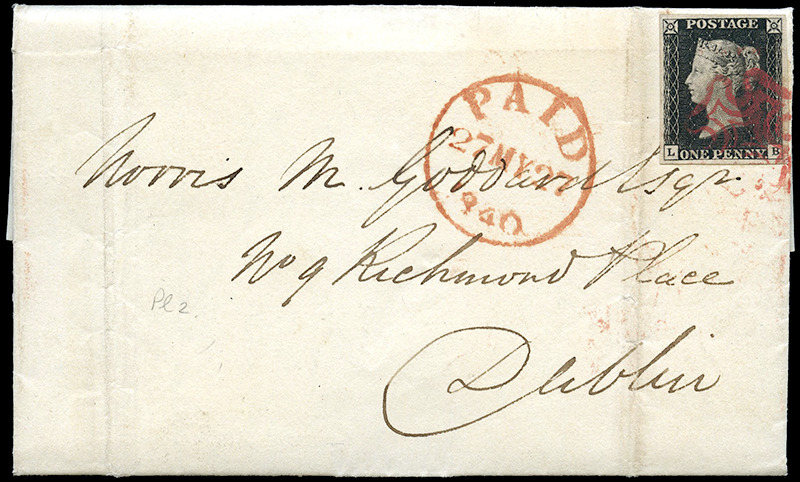 POSTAGE
L B
ONE PENNY
PAID
27 MY 27
840
Norris M. Goddard Esqr
No 9 Richmond Place
Pl 2.
Dublin